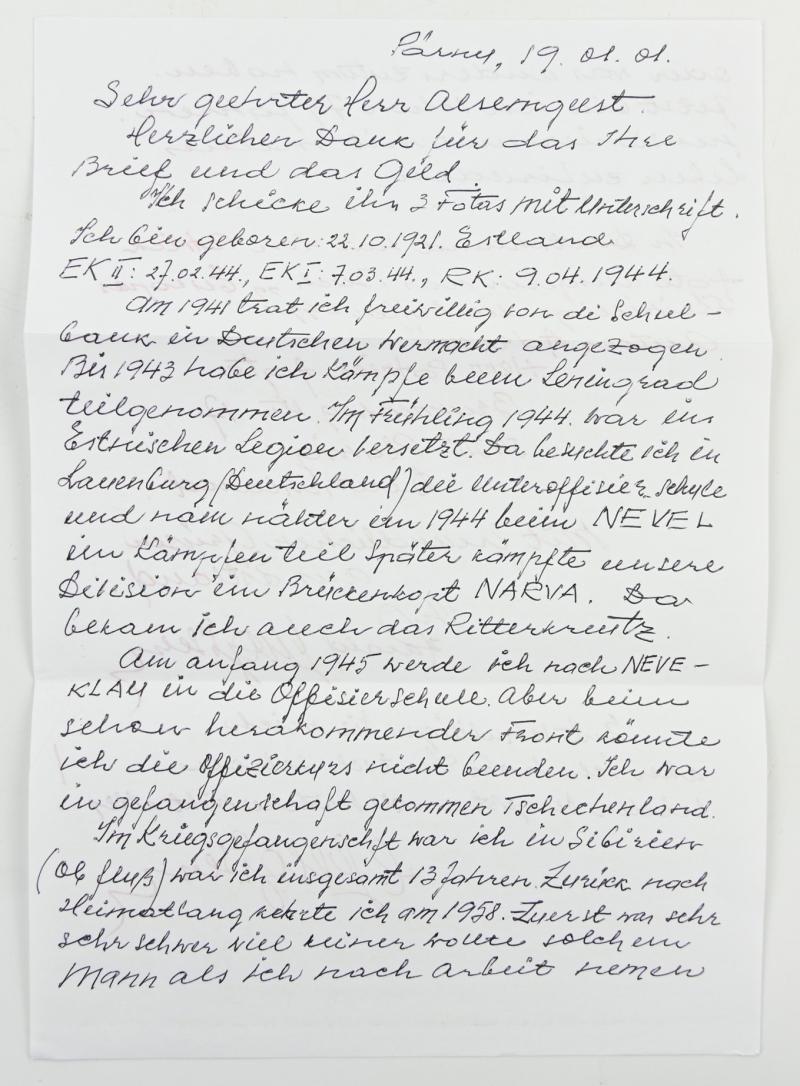 Pärnu, 19. 01. 01.
Sehr geehrter Herr Alsemgeest.
Herzlichen Dank für das Ihre
Brief und das Geld.
Ich schicke ihn 3 Fotas mit Unterschrift.
Ich bin geboren: 22.10.1921. Estland
EK II: 27.02.44., EK I: 7.03.44., RK: 9.04.1944.
Am 1941 trat ich freiwillig von di Schul-
bank in Deutschen Wermacht angezogen.
Bis 1943 habe ich Kämpfe beim Leningrad
teilgenommen. Im Frühling 1944. war ins
Estnischen Legion versetzt. Da besuchte ich in
Lauenburg (Deutschland) die Unteroffisier schule
und nam nähter im 1944 beim NEVEL
im Kämpfen teil Später kämpfte unsere
Division im Brückenkopt NARVA. Da
bekam ich auch das Ritterkreutz.
Am anfang 1945 werde ich nach NEVE-
KLAU in die Offisierschule. Aber beim
schon herakommender Front könnte
ich die Offizierkurs nicht beenden. Ich war
in gefangenschaft gekommen Tschechenland.
Im Kriegsgefangenschft war ich in Sibirien
(Ob fluß) war ich insgesamt 13 Jahren. Zurikk nach
Heimatlang kehrte ich am 1958. Zuerst war sehr
sehr schwer viel keiner wollte solchem
Mann als ich nach Arbeit nemen